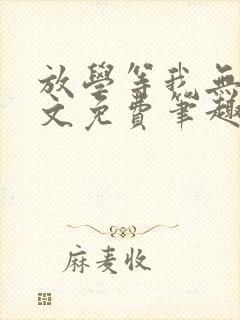 放學等我無
文免費筆趣
麻麦收